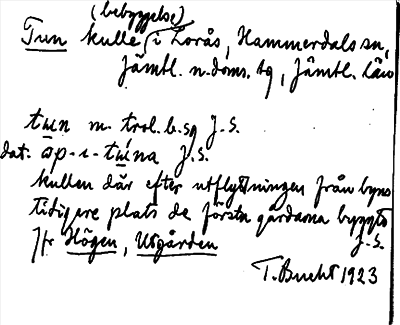 (bebyggelse)
Tun kulle, i Zorås, Hammerdals sn,
Jämtl. n. doms. tg, Jämtl. län
tɯn m. trol. b. sg J.S.
dat. øp-ı-tɯ́na J.S.
kullen där efter utflyttningen från byns
tidigere plats de första gårdarna byggts
J.S.
Jfr Högen, Utgården
T. Bucht 1923